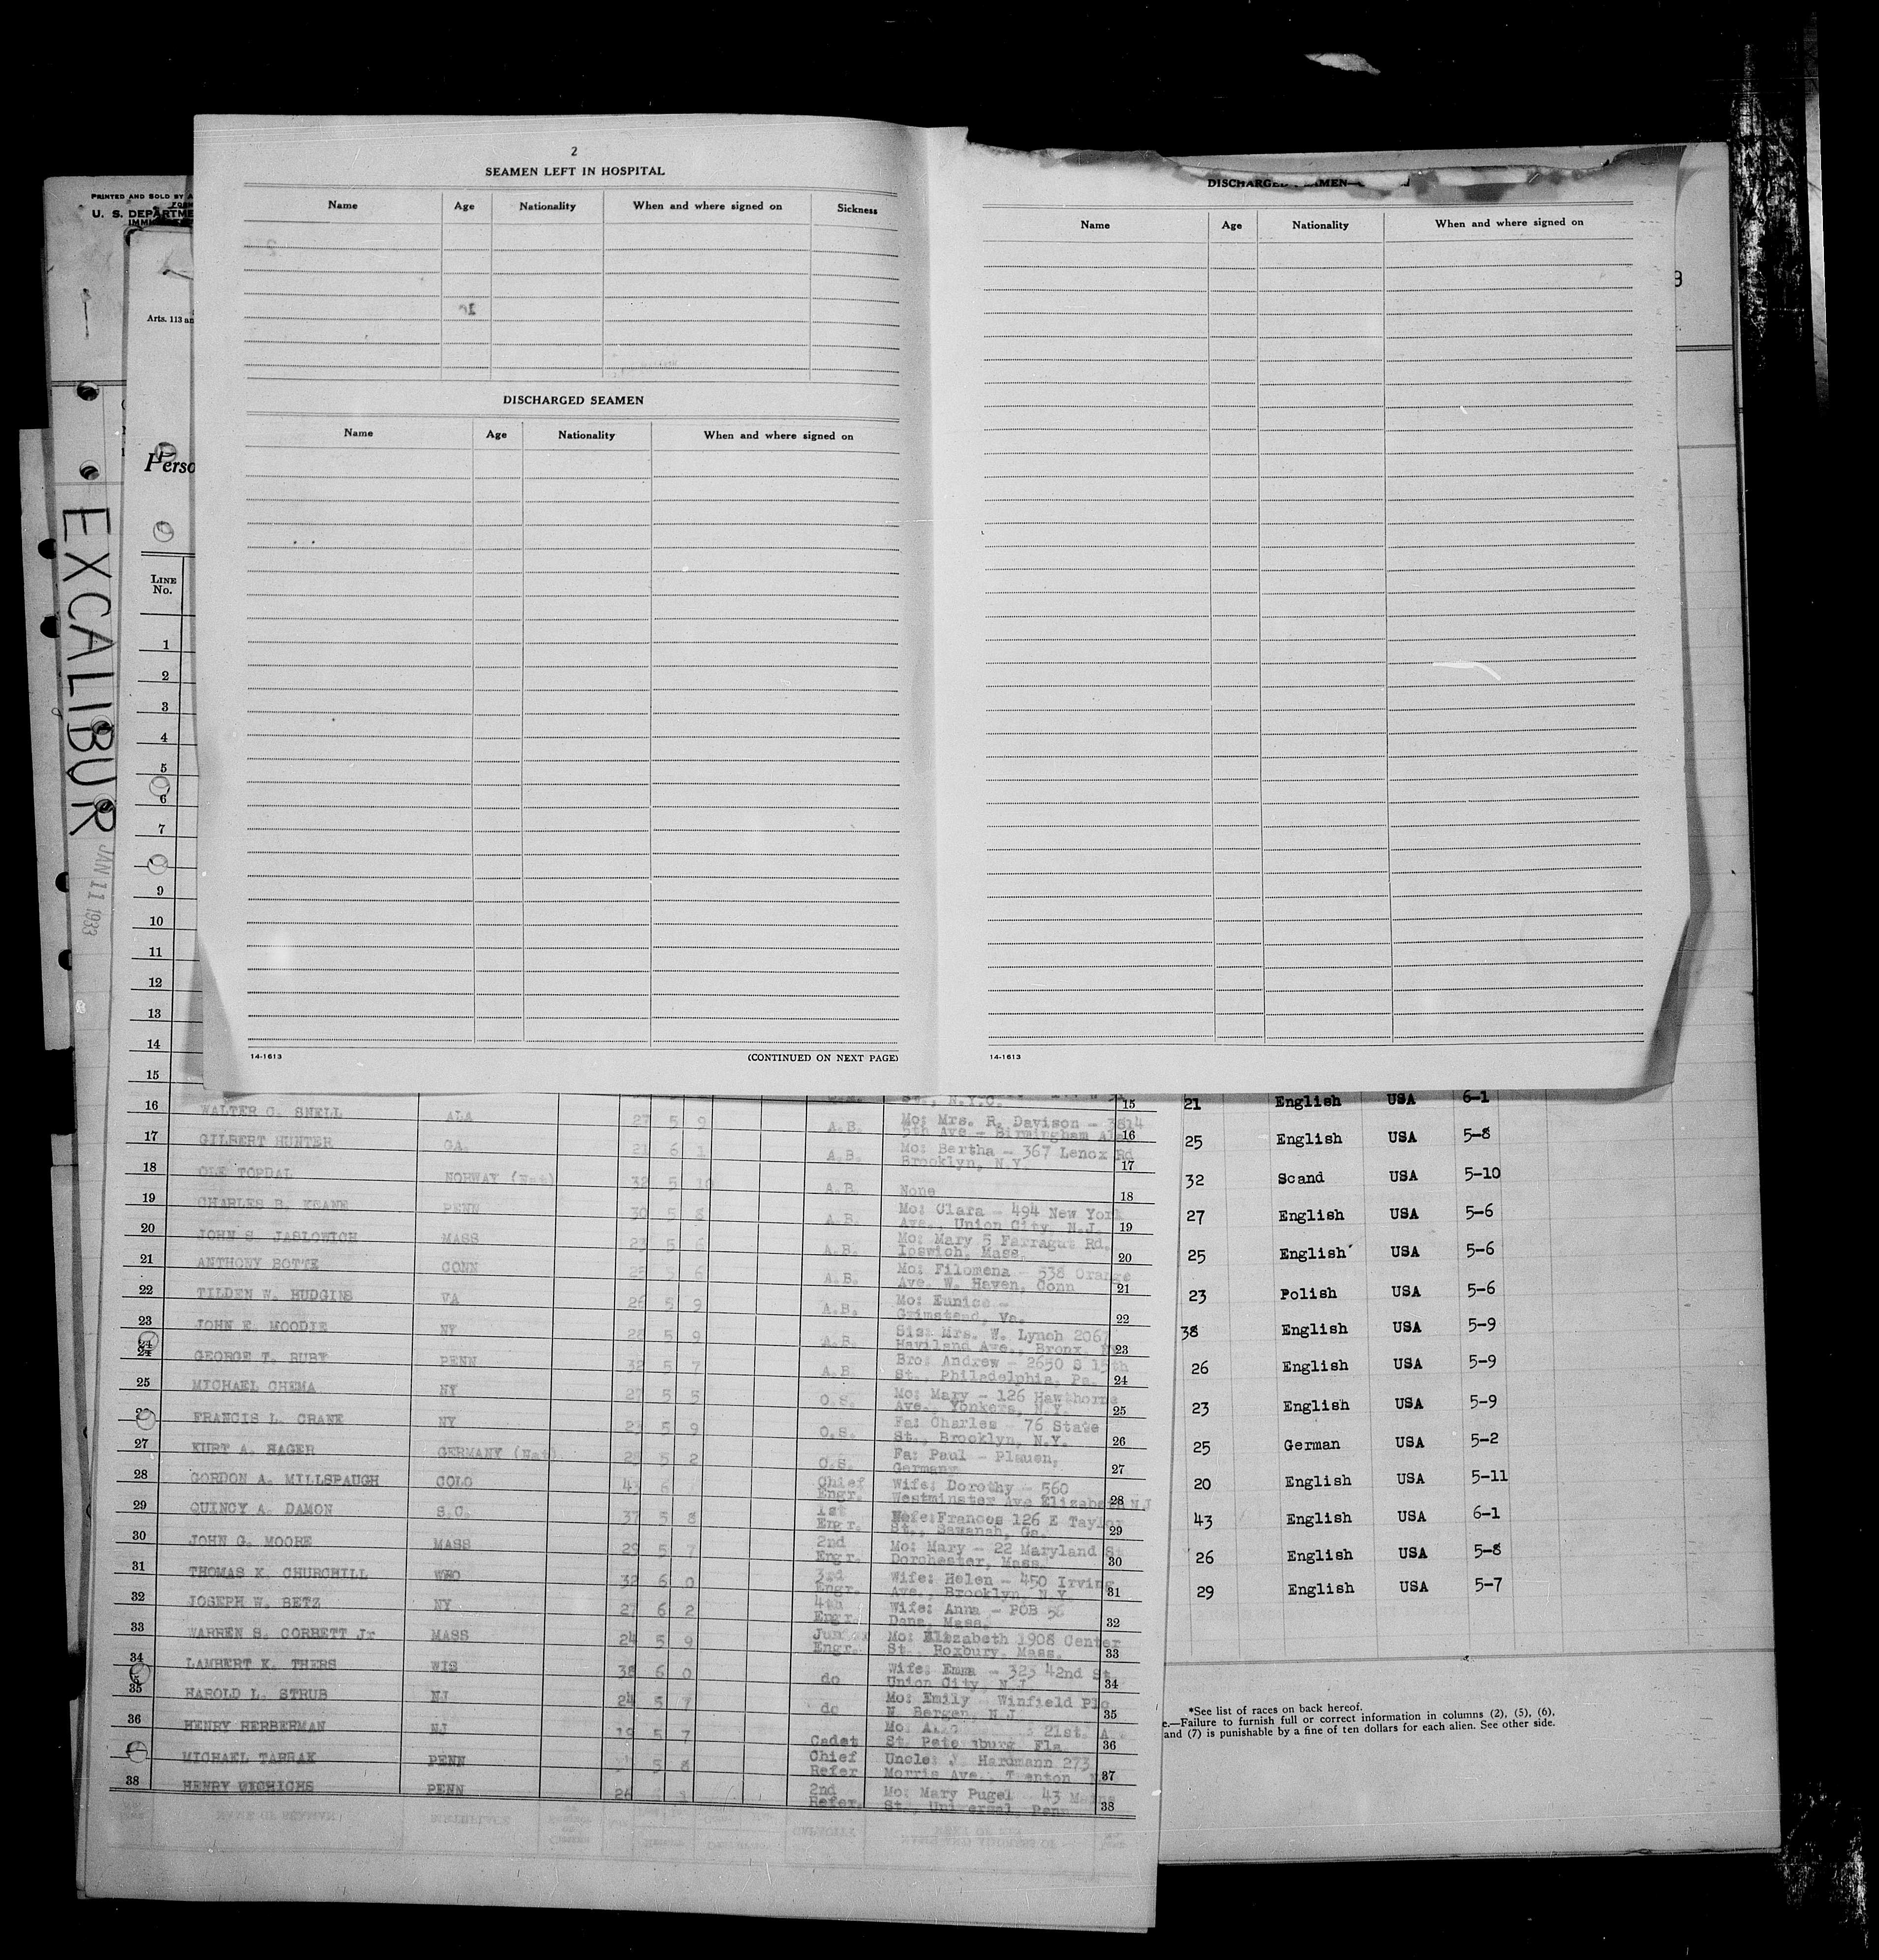 2
SEAMEN LEFT IN HOSPITAL
Name Age Nationality When and where signed on Sickness
DISCHARGED SEAMEN
Name Age Nationality When and where signed on
14-1613 (CONTINUED ON NEXT PAGE)
Name Age Nationality When and where signed on
14-1613
PRINTED AND SOLD BY
U. S. DEPARTME
Arts. 113 an
Perso
EXCALIBUR
JAN 11 1933
LINE
No.
1
2
3
4
5
6
7
9
10
11
12
13
14
15
St., N.Y.C. 15
16 WALTER C. SNELL ALA 27 5 9 A.B. Mo: Mrs. R. Davison - 3814
5th Ave - Birmingham 16
17 GILBERT HUNTER GA. 21 6 1 A.B. Mo: Bertha - 367 Lenox Rd
Brooklyn, N.Y. 17
18 OLE TOPDAL NORWAY (Nat) 32 5 10 A.B. None 18
19 CHARLES B. KEANE PENN 30 5 8 A.B. Mo: Clara - 494 New York
Ave., Union City, N.J. 19
20 JOHN S. JASLOWICH MASS 23 5 6 A.B. Mo: Mary 5 Farragut Rd.
Ipswich, Mass. 20
21 ANTHONY BOTTE CONN 25 5 6 A.B. Mo: Filomena - 538 Orange
Ave. W. Haven, Conn 21
22 TILDEN W. HUDGINS VA 26 5 9 A.B. Mo: Eunice -
Grimstead, Va. 22
23 JOHN E. MOODIE NY 28 5 9 A.B. Sis: Mrs. W. Lynch 2067
Haviland Ave., Bronx, 23
24 GEORGE T. RUBY PENN 32 5 7 A.B. Bro: Andrew - 2650 S 15th
St., Philadelphia, Pa. 24
25 MICHAEL CHEMA NY 27 5 5 O.S. Mo: Mary - 126 Hawthorne
Ave., Yonkers, N.Y. 25
FRANCIS L. CRANE NY 23 5 9 O.S. Fa: Charles - 76 State
St., Brooklyn, N.Y. 26
27 KURT A. HAGER GERMANY (Nat) 25 5 2 O.S. Fa: Paul - Plauen,
Germany 27
28 GORDON A. MILLSPAUGH COLO 43 6 Chief Wife: Dorothy - 560
Engr. Westminster Ave Elizabeth NJ 28
29 QUINCY A. DAMON S.C. 37 5 8 1st Frances 126 E Taylor
Engr. St., Savanah, Ga. 29
30 JOHN G. MOORE MASS 29 5 7 2nd Mo: Mary - 22 Maryland St
Engr. Dorchester, Mass. 30
31 THOMAS K. CHURCHILL 32 6 0 3rd Wife: Helen - 450 Irving
Engr. Ave., Brooklyn, N.Y. 31
32 JOSEPH W. BETZ NY 27 6 2 4th Wife: Anna - POB 56
Engr. Dana, Mass. 32
33 WARREN S. CORBETT Jr MASS 24 5 9 Junior Mo: Elizabeth 1908 Center
Engr. St., Roxbury, Mass. 33
34 LAMBERT K. THERS WIS 38 6 0 do Wife: Emma - 323 42nd St
Union City, N.J 34
35 HAROLD L. STRUB NJ 24 5 7 do Mo: Emily - Winfield
N. Bergen, N.J. 35
36 HENRY HERBERMAN NJ 19 5 7 Cadet Mo: 21st.
St. Petersburg, Fla. 36
MICHAEL TARRAK PENN 5 8 Chief Uncle: Hardmann 273
Refer Morris Ave., Trenton 37
38 HENRY PENN 26 2nd Mo: Mary Pugel 43
Refer. St., Universal, Penn 38
21 English USA 6-1
25 English USA 5-8
32 Scand USA 5-10
27 English USA 5-6
25 English USA 5-6
23 Polish USA 5-6
38 English USA 5-9
26 English USA 5-9
23 English USA 5-9
25 German USA 5-2
20 English USA 5-11
43 English USA 6-1
26 English USA 5-8
29 English USA 5-7
*See list of races on back hereof.
e.—Failure to furnish full or correct information in columns (2), (5), (6),
and (7) is punishable by a fine of ten dollars for each alien. See other side.